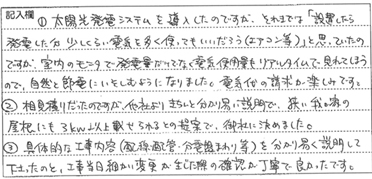 記入欄 ① 太陽光発電システムを導入したのですが、それまでは「設置したら
発電した分 少しぐらい電気を多く使ってもいいだろう(エアコン等)」と思っていたの
ですが、室内のモニタで発電量だけでなく電気使用量もリアルタイムで見れてしまう
ので、自然と節電にいそしむようになりました。電気代の請求が楽しみです。
② 相見積りだったのですが、他社よりきちんと分かり易い説明で、狭い我が家の
屋根にも3kw以上載せられるとの提案で、御社に決めました。
③ 具体的な工事内容(配線配管・分電盤まわり等)を分かり易く説明して
下さったのと、工事当日細かい変更が生じた際の確認が丁寧で良かったです。